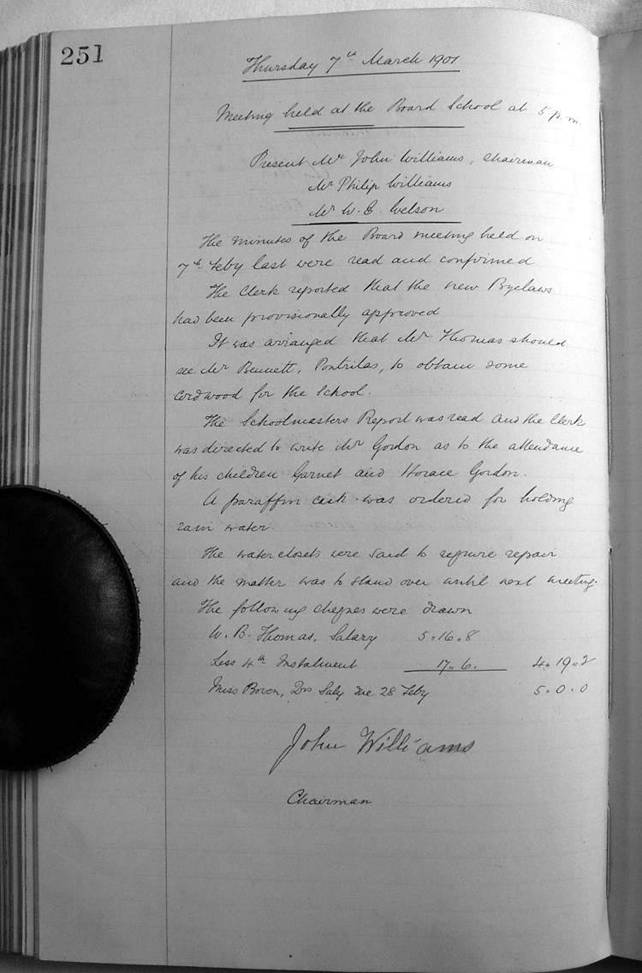 251
Thursday 7th March 1901
Meeting held at the Board School at 5 p.m.
Present Mr John Williams, Chairman
Mr Philip Williams
Mr W. E. Welson
The minutes of the Board meeting held on
7th Feby last were read and confirmed
The Clerk reported that the new Byelaws
had been provisionally approved
It was arranged that Mr Thomas should
see Mr Bennett, Pontrilas, to obtain some
cordwood for the School.
The Schoolmasters Report was read and the Clerk
was directed to write Mr Gordon as to the attendance
of his children Garnet and Horace Gordon.
A paraffin cask was ordered for holding
rain water
The water closets were said to require repair
and the matter was to stand over until next meeting.
The following cheques were drawn
W. B. Thomas, Salary 5.16.8
Less 4th Instalment 17.6. 4.19.2
Miss due 28 Feby 5.0.0
John Williams
Chairman